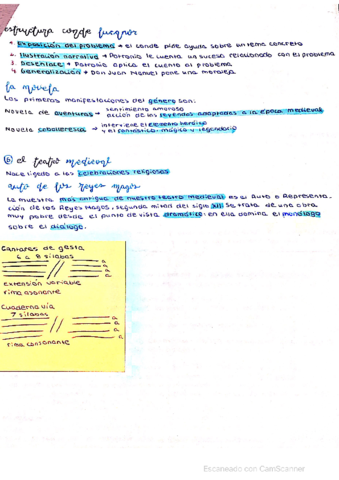 estructura conde lucanor
1. Exposición del problema → el conde pide ayuda sobre un tema concreto
2. Ilustración narrativa → Patronio le cuenta un suceso relacionado con el problema
3. Desenlace → Patronio aplica el cuento al problema
4. Generalización → Don Juan Manuel pone una moraleja
la novela
Las primeras manifestaciones del género son:
sentimiento amoroso
Novela de aventuras → acción de las leyendas adaptadas a la época medieval
Novela caballeresca → interviene el elemento heroico
y el fantástico: mágico y legendario
⑥ el teatro medieval
Nace ligado a las celebraciones religiosas
auto de los reyes magos
La muestra más antigua de nuestro teatro medieval es el Auto o Representa-
ción de los Reyes Magos, segunda mitad del siglo XII. Se trata de una obra
muy pobre desde el punto de vista dramático: en ella domina el monólogo
sobre el diálogo.
Cantares de gesta
6 a 8 sílabas
// a
a
a
extensión variable
rima asonante
Cuaderna vía
7 sílabas
// a
a
a
a
rima consonante
Escaneado con CamScanner